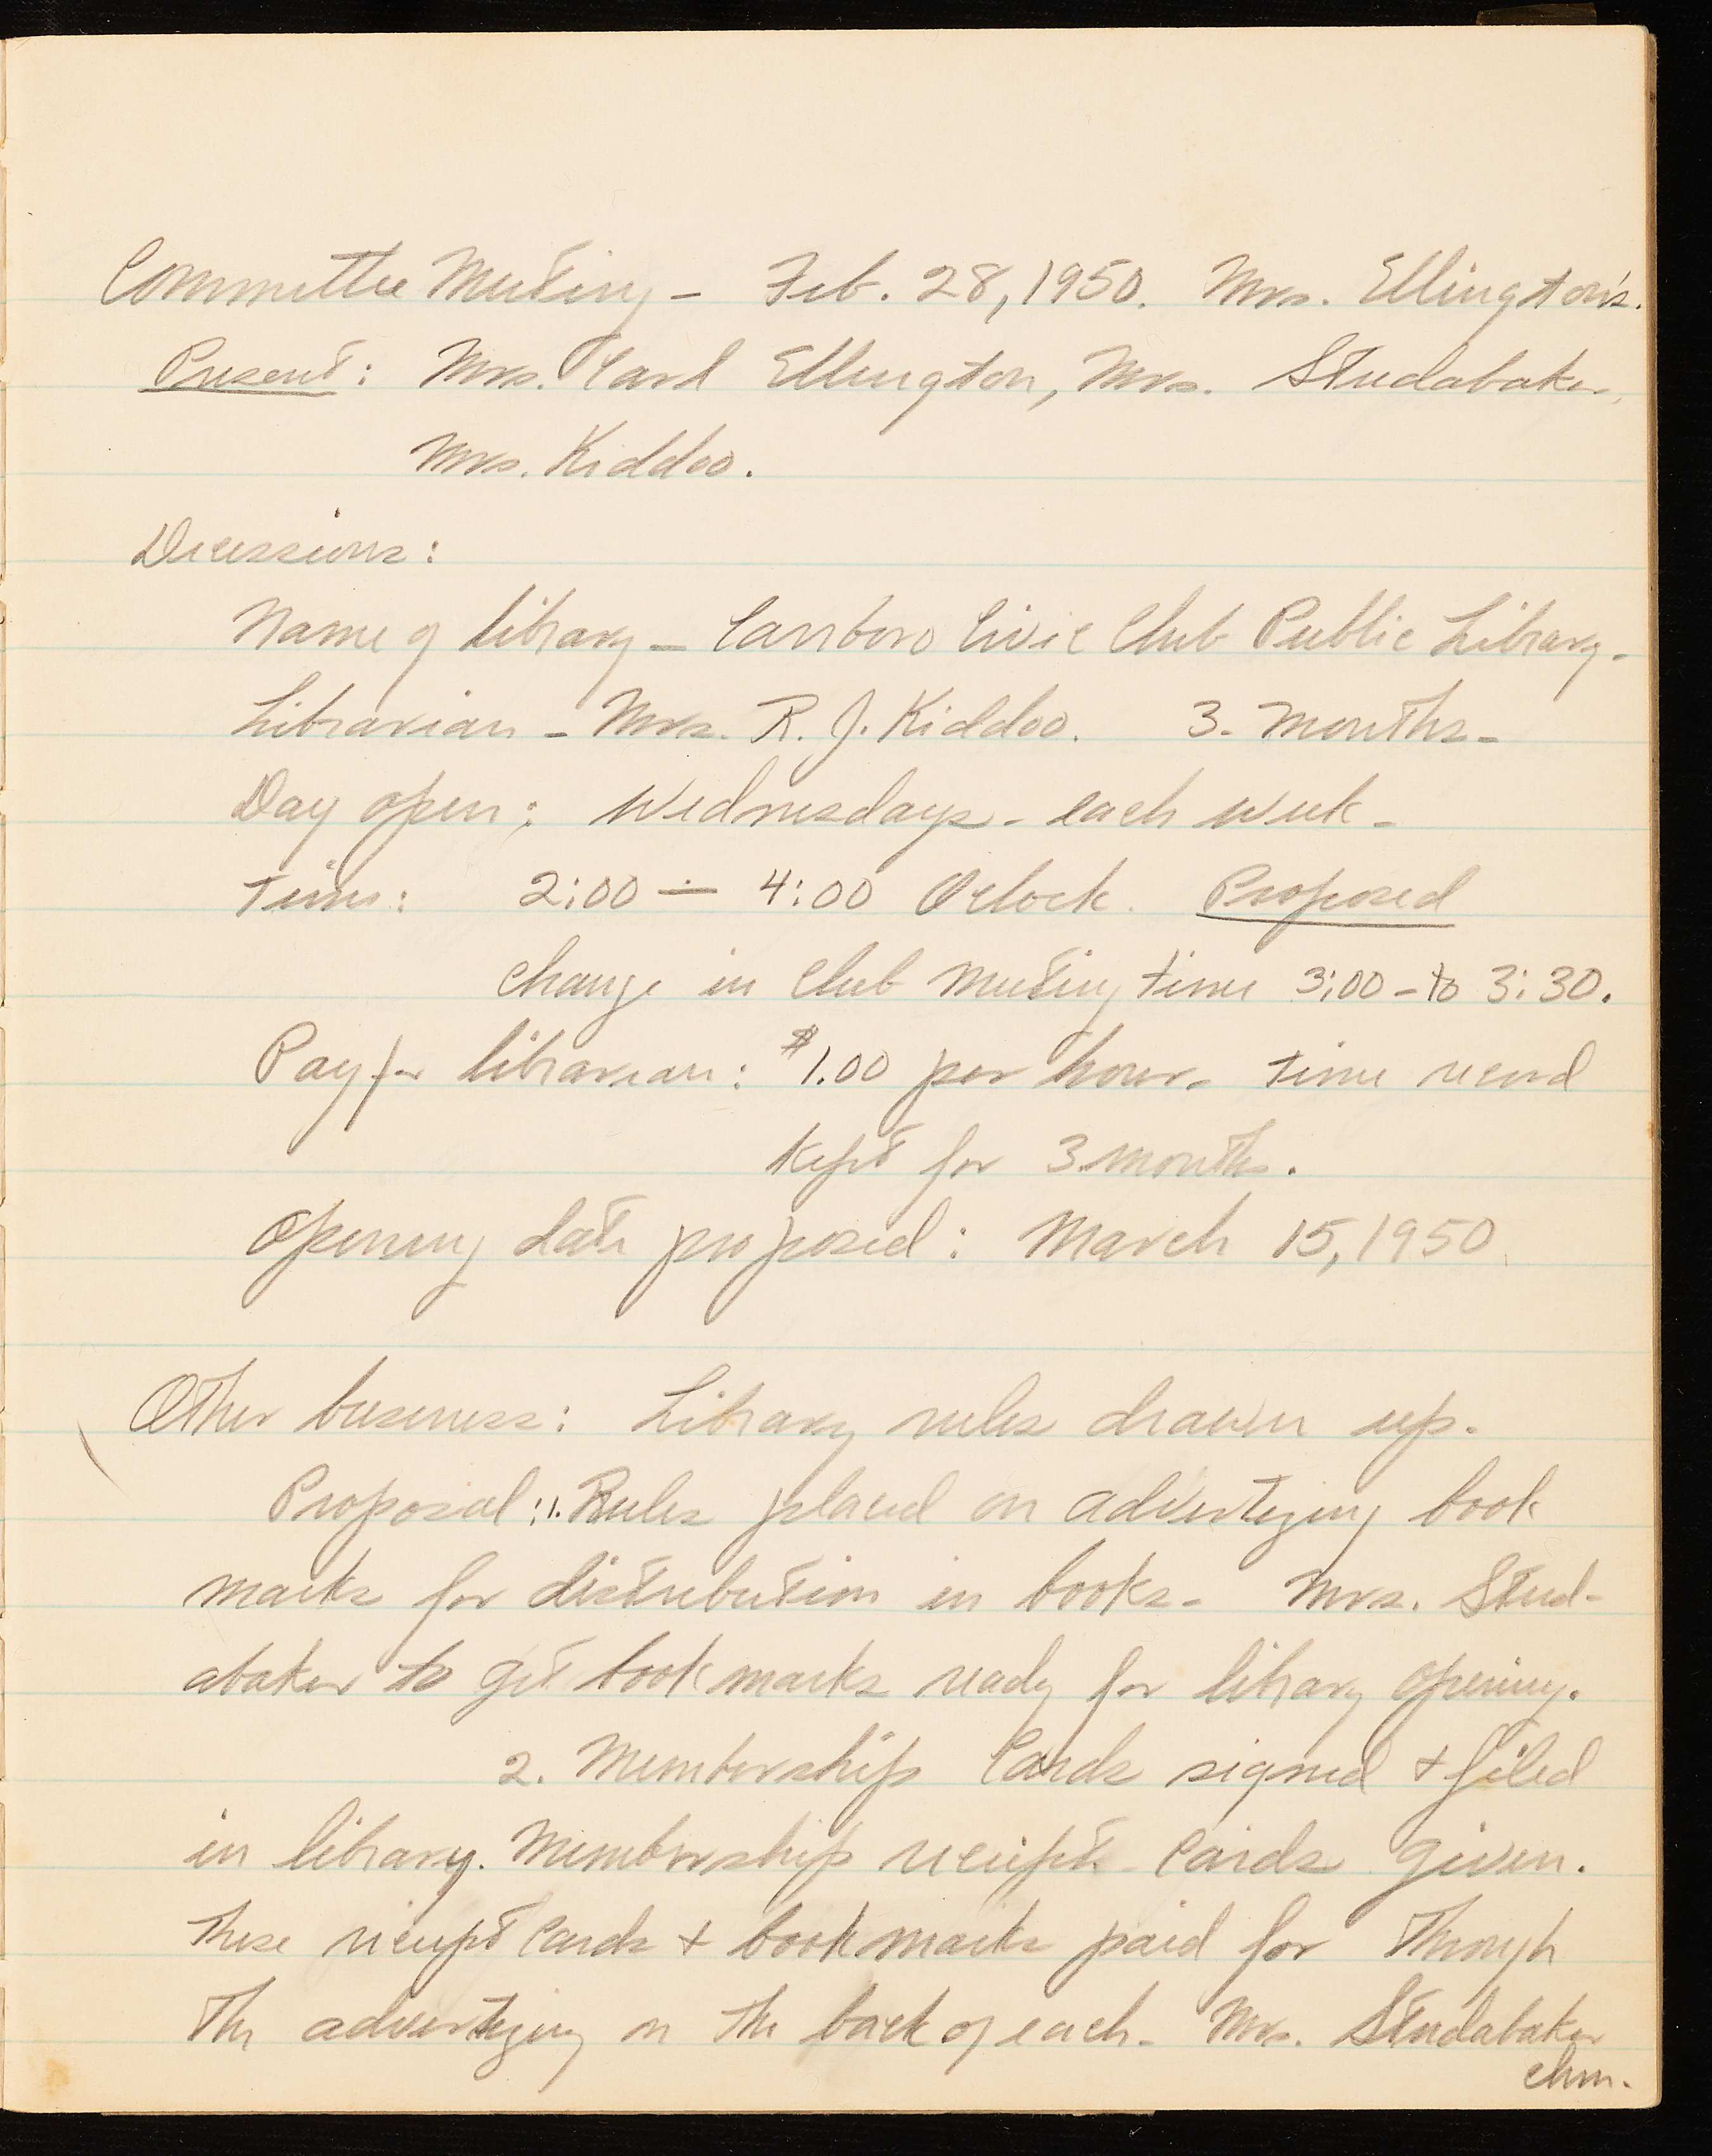 Committee Meeting - Feb. 28, 1950. Mrs. Ellington's.
Present: Mrs. Carl Ellington, Mrs. Studabaker,
Mrs. Kiddoo.
Decissions:
Name of library - Carrboro Civic Club Public Library -
Librarian - Mrs. R. J. Kiddoo. 3 - months -
Day open: Wednesdays - each week -
Time: 2:00 - 4:00 Oclock. Proposed
change in club meeting time 3:00 - to 3:30.
Pay for librarian: $1.00 per hour - time record
kept for 3 months.
Opening date proposed: March 15, 1950.
Other business: Library rules drawn up.
Proposal: 1. Rules placed on advertizing book
marks for distribution in books - Mrs. Stud-
abaker to get book marks ready for library opening.
2. Membership Cards signed + filed
in library. Membership receipt cards given.
These receipt cards + bookmarks paid for through
the advertizing on the back of each - Mrs. Studabaker
chm.